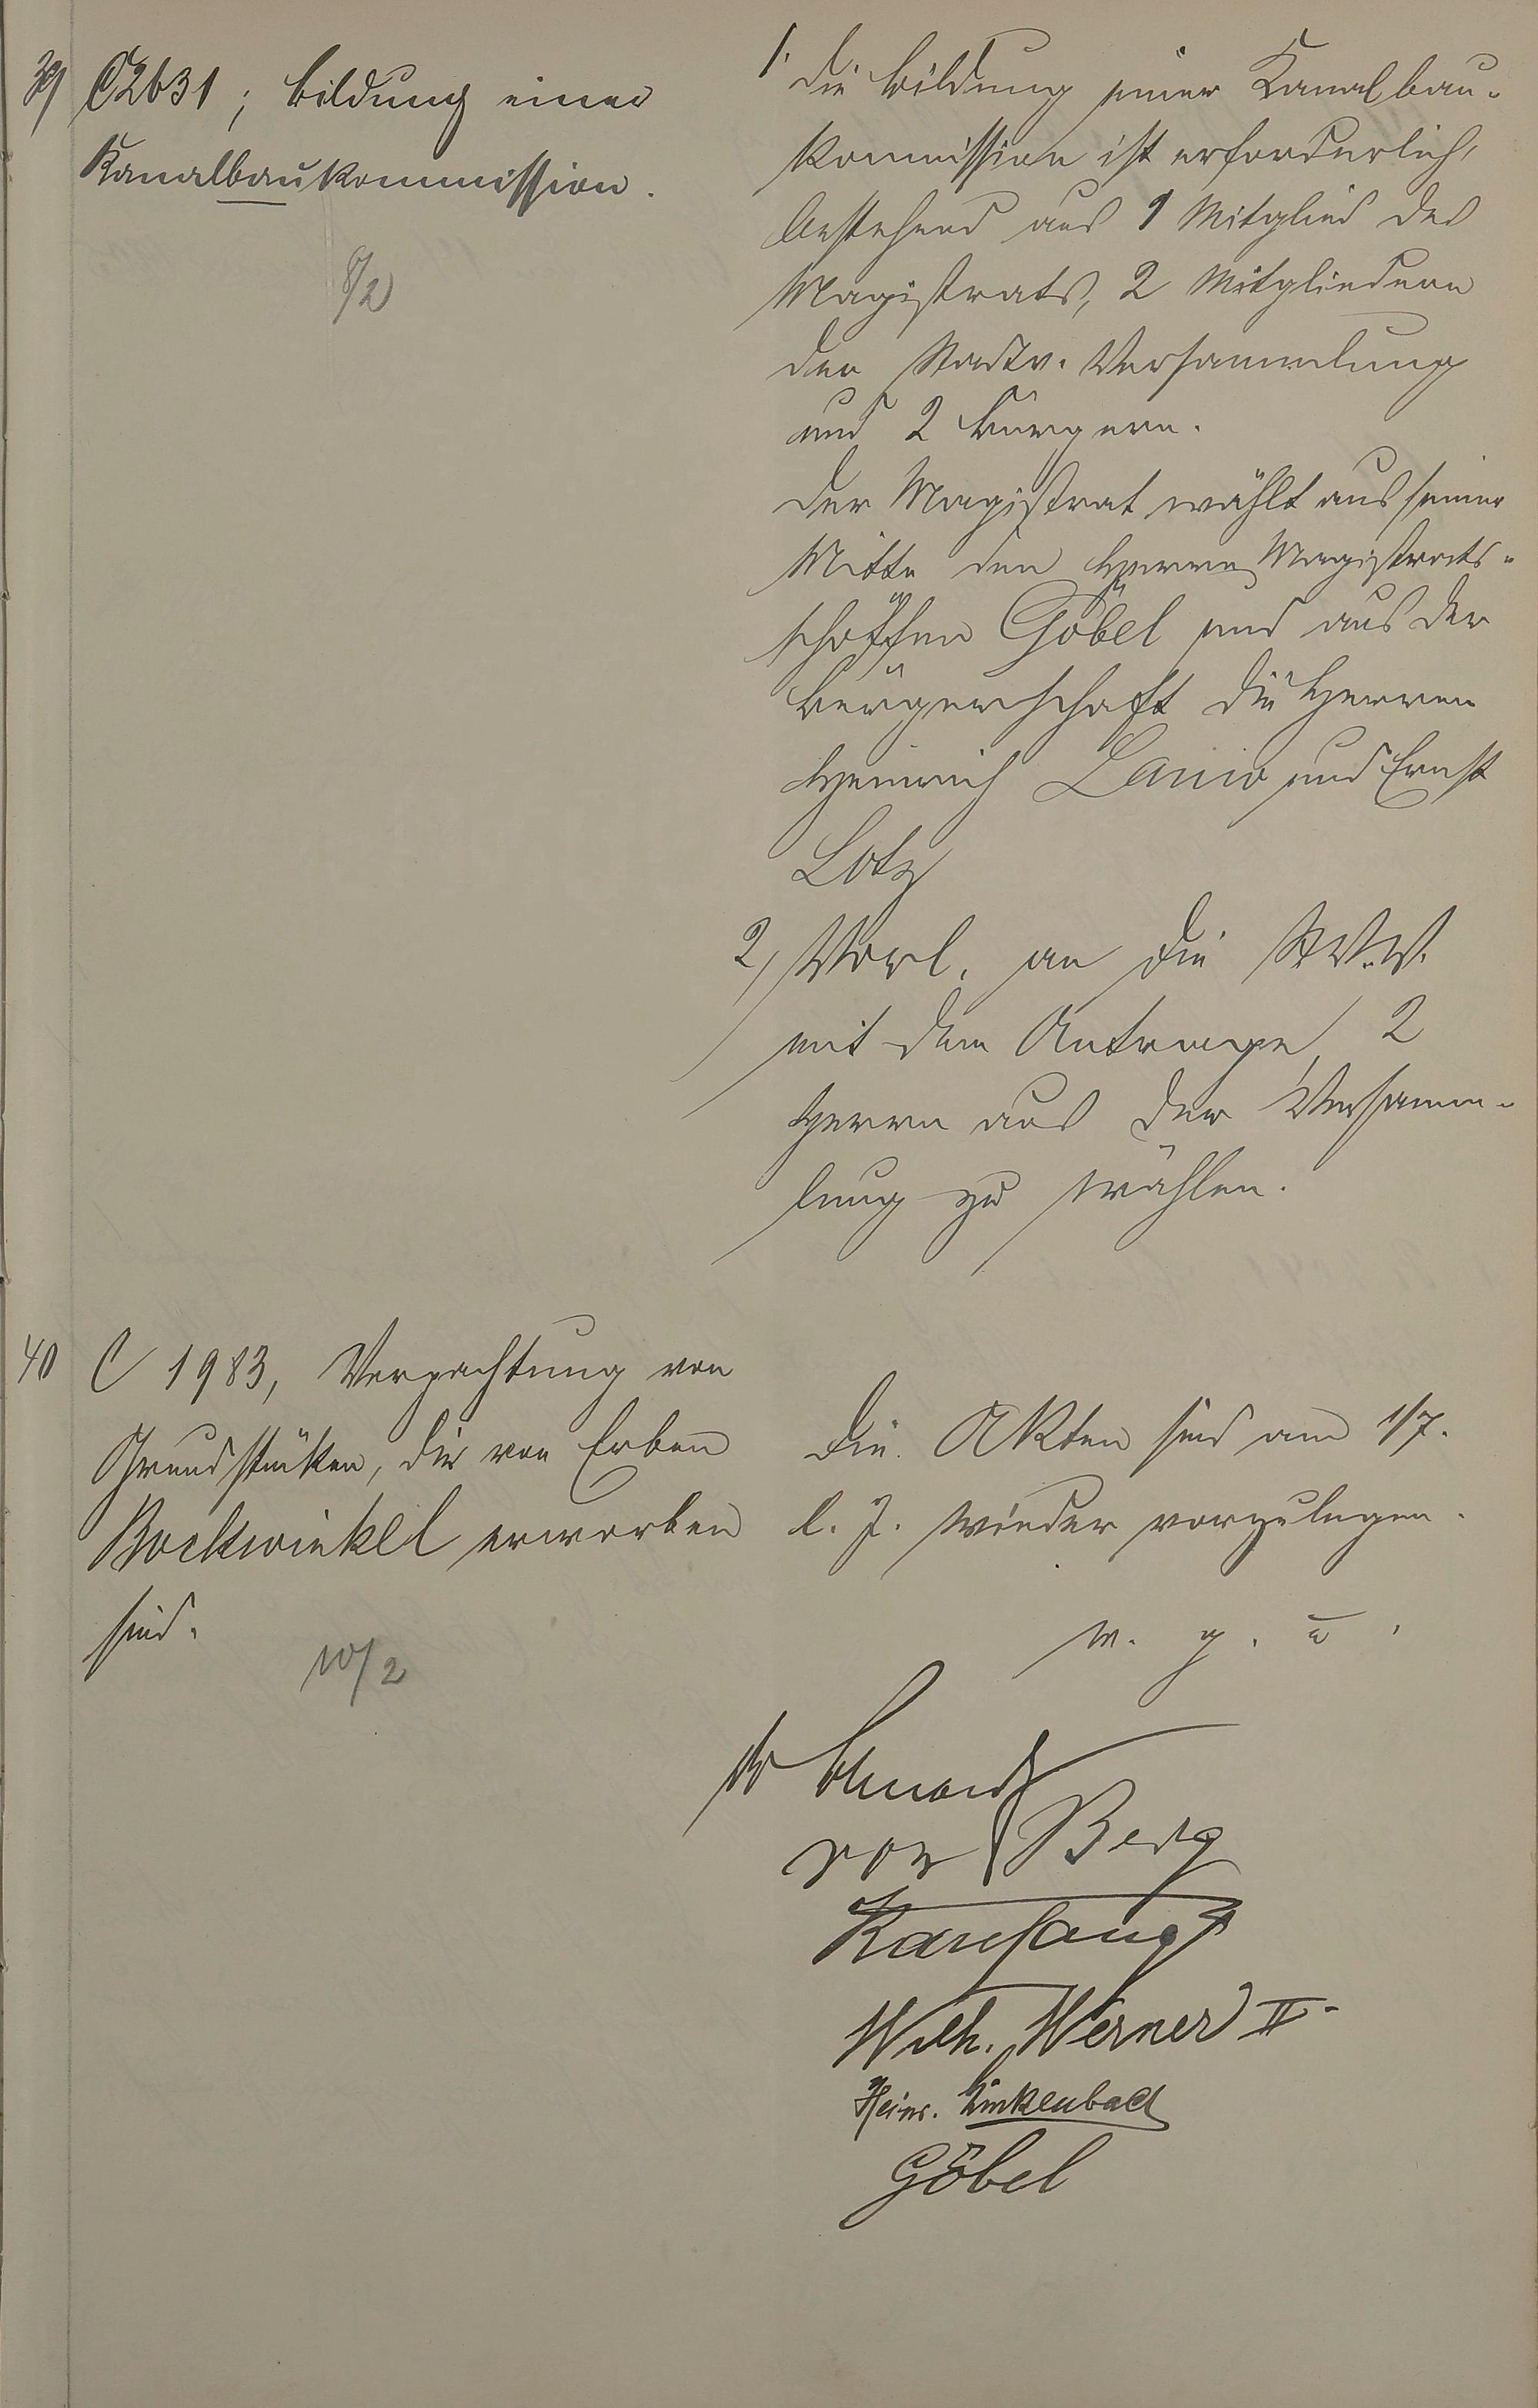 39) C 2631; Bildung einer
Kanalbaukommission.
8/2
1. Die Bildung einer Kanalbau-
kommission ist erforderlich,
bestehend aus 1 Mitglied des
Magistrats, 2 Mitgliedern
der Stadtv. Versammlung
und 2 Bürgern.
Der Magistrat wählt aus seiner
Mitte den Herrn Magistrats-
schöffen Göbel und aus der
Bürgerschaft die Herren
Heinrich Lanio und Ernst
Lotz
2) Vorl. an die St.V.V.
mit dem Antrage, 2
Herrn aus der Versamm-
lung zu wählen.
40 C 1983, Verpachtung von
Grundstücken, die von Erben
Bockwinkel erworben
sind.
10/2
Die Akten sind am 1/7.
l. J. wieder vorzulegen.
v. g. u.
von Berg
Wilh. Werner II.
Heinr. Linkenbach
Göbel